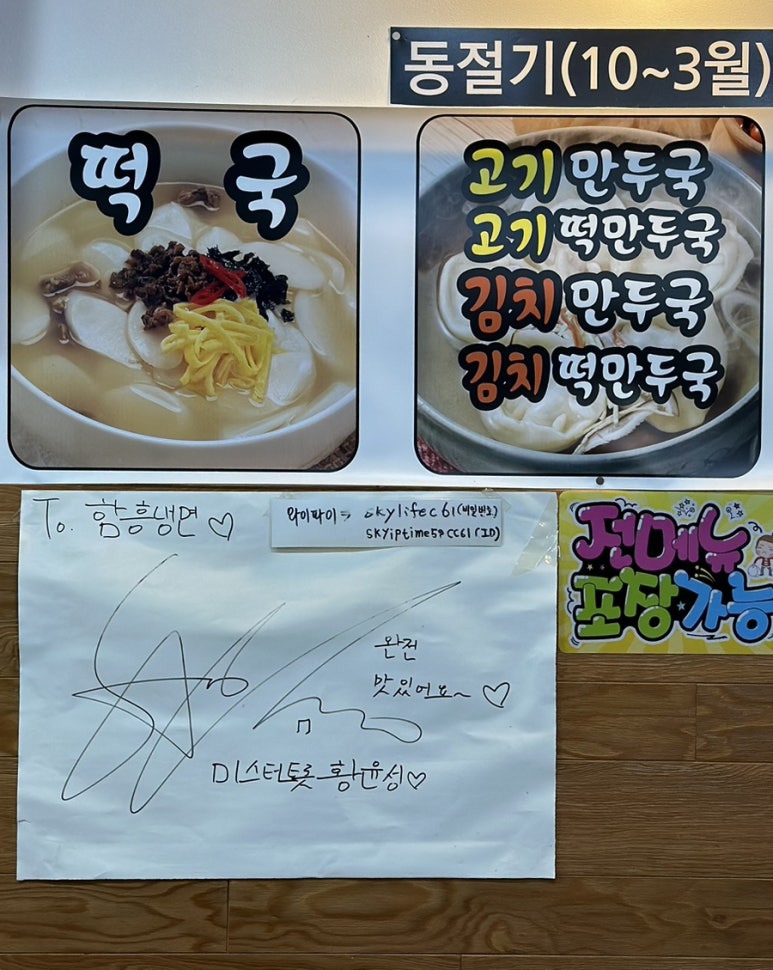 동절기(10~3월)
떡 국
고기 만두국
고기 떡만두국
김치 만두국
김치 떡만두국
To. 함흥냉면♡
와이파이⇒ skylifec61(비밀번호)
(ID)
전메뉴
포장가능
완전
맛있어요~ ♡
미스터트롯 황윤성♡